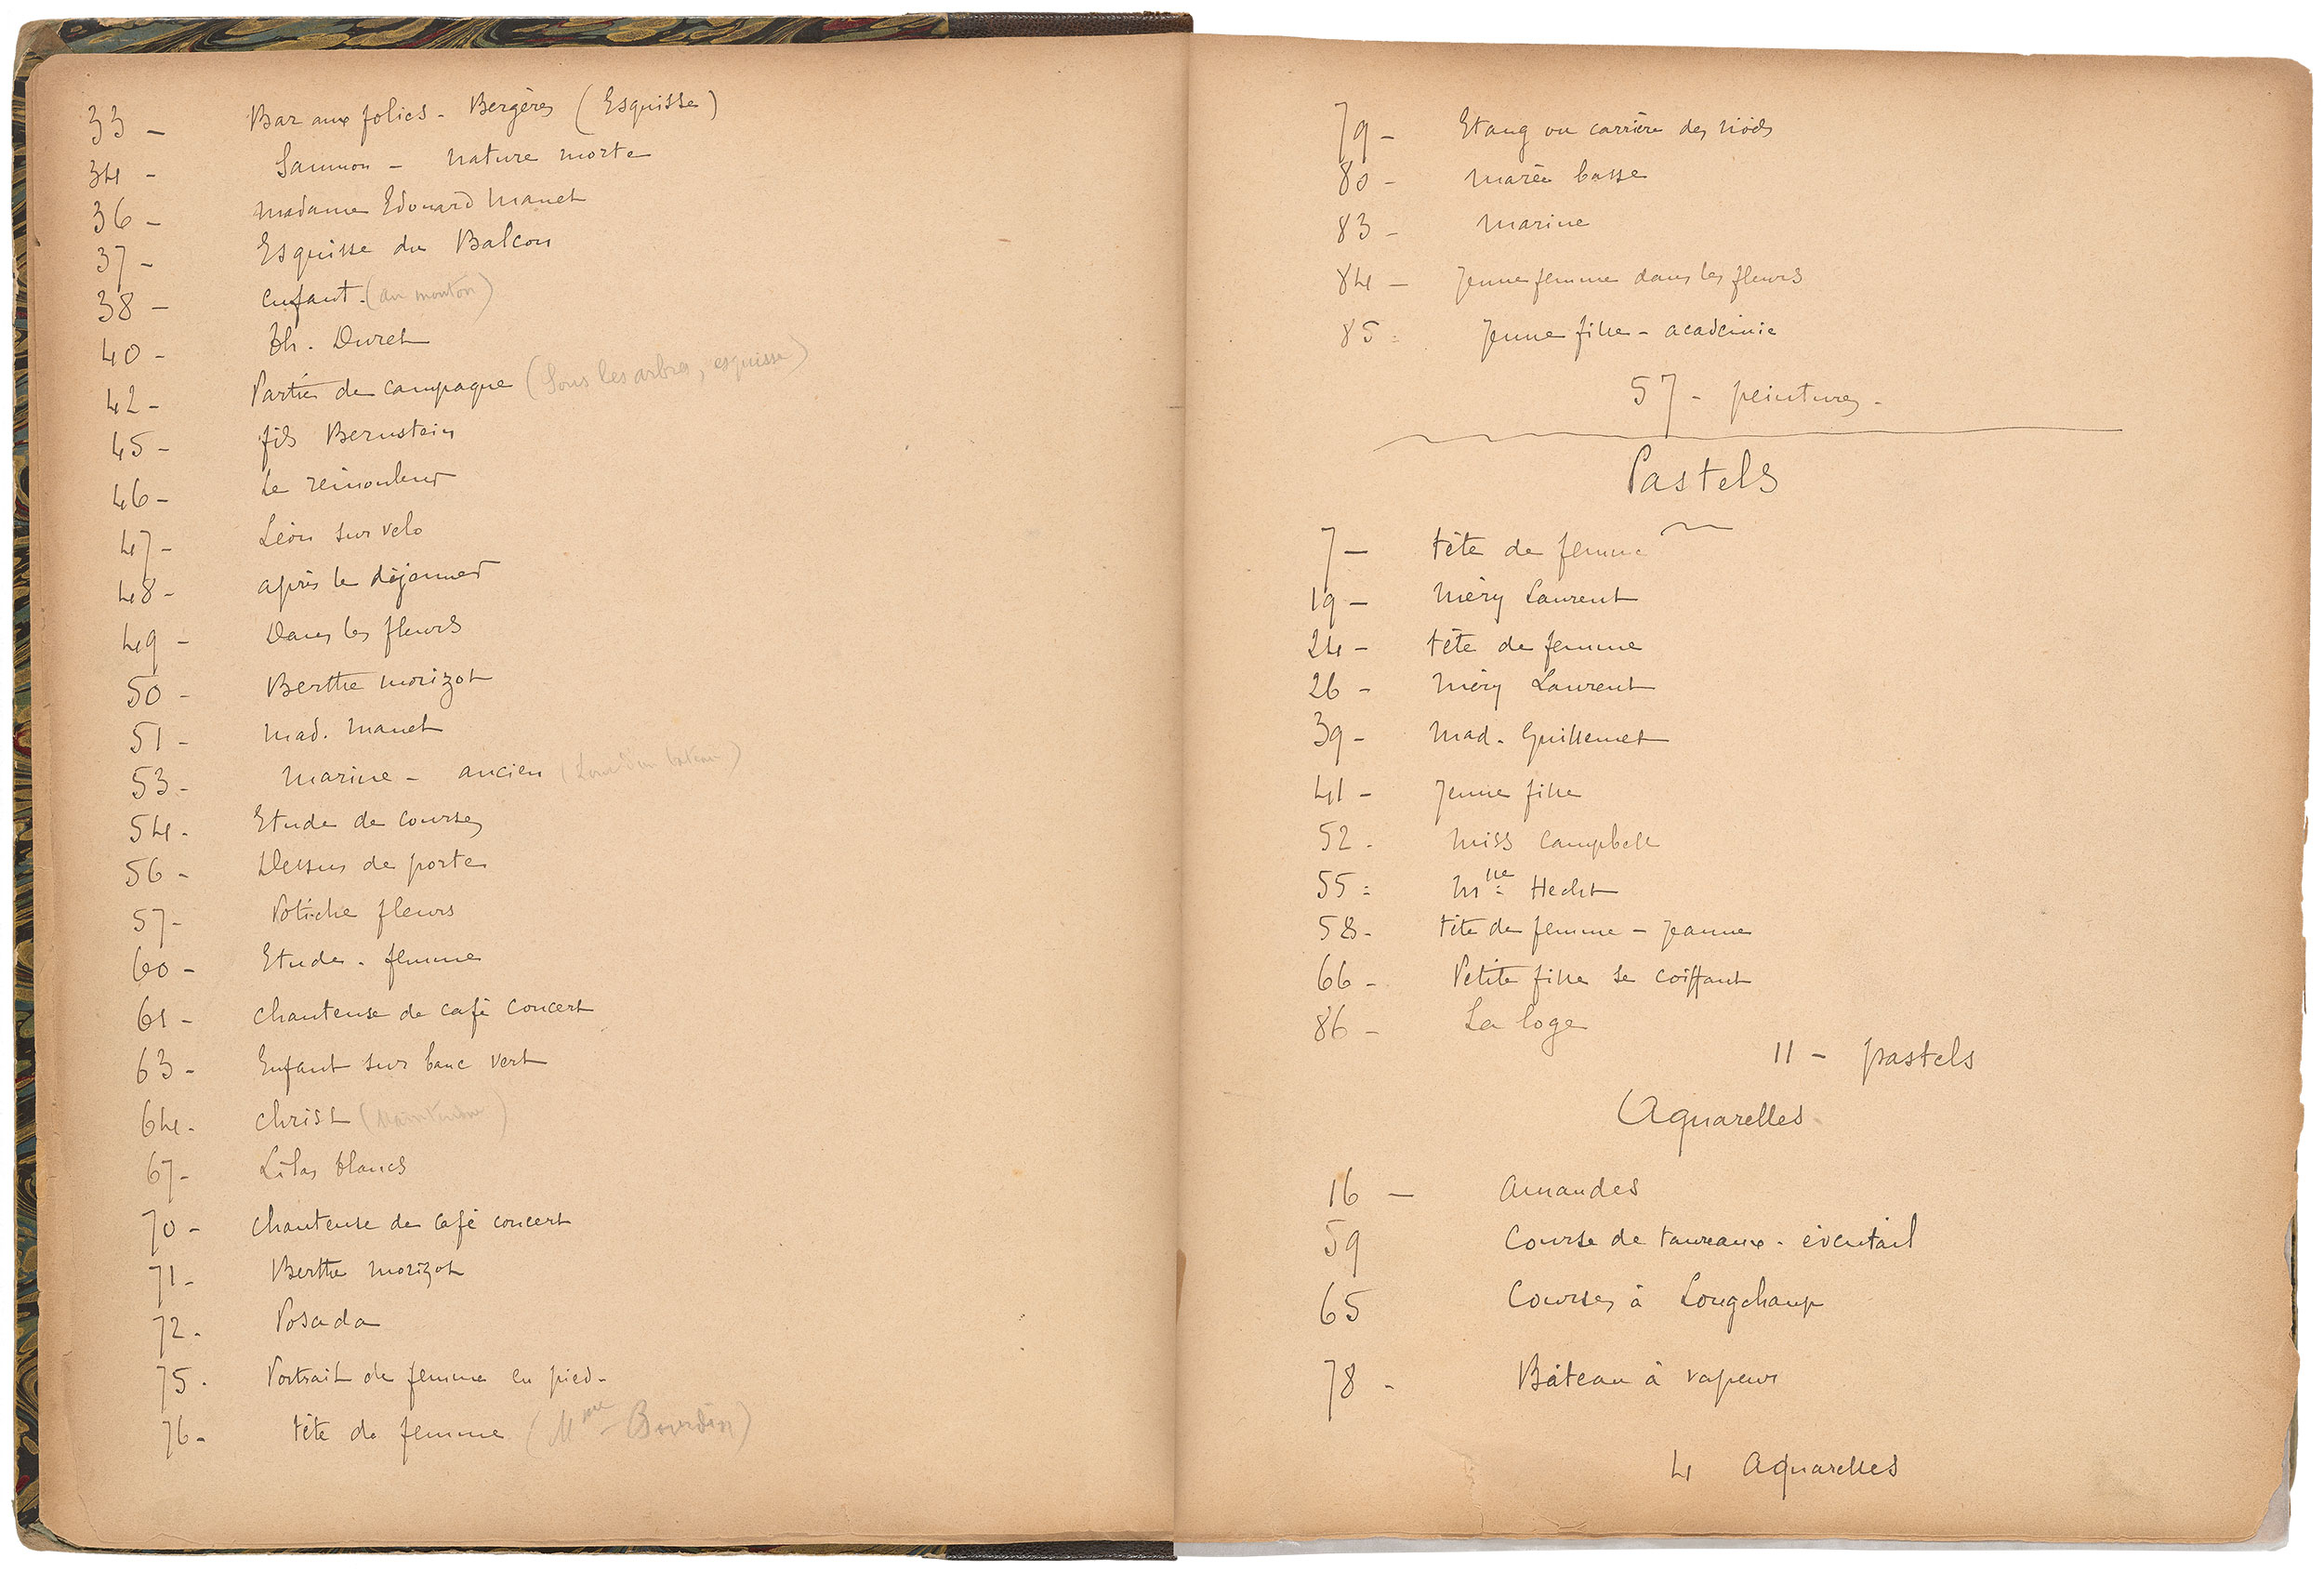 33 - Bar aux folies - Bergères (Esquisse)
34 - Saumon - nature morte
36 - Madame Edouard Manet
37 - Esquisse du Balcon
38 - enfant. (au mouton)
40 - Th. Duret
42 - Partie de campagne (Sous les arbres, esquisse)
45 - fils Bernstein
46 - Le rémouleur
47 - Léon sur velo
48 - après le déjeuner
49 - Dans les fleurs
50 - Berthe Morizot
51 - Mad. Manet
53 - Marine - ancien
54 - Etude de courses
56 - Dessus de porte
57 - Potiche fleurs
60 - Etude - femme
61 - chanteuse de café concert
63 - Enfant sur banc vert
64 - christ
67 - Lilas blancs
70 - chanteuse de café concert
71 - Berthe Morizot
72 - Posada
75 - Portrait de femme en pied -
76 - tête de femme (Mme Bourdin)
79 - Etang ou carrière des
80 - Marée basse
83 - Marine
84 - Jeune femme dans les fleurs
85 - Jeune fille - academie
57 - peintures -
Pastels
7 - tête de femme
19 - Méry Laurent
24 - tête de femme
26 - Méry Laurent
39 - Mad. Guillemet
41 - Jeune fille
52 - Miss Campbell
55 - Mlle Hecht
58 - tête de femme - Jeanne
66 - Petite fille se coiffant
86 - La loge
11 - pastels
Aquarelles
16 - Amandes
59 Course de taureaux - éventail
65 Courses à Longchamp
78 - Bâteau à vapeur
4 Aquarelles